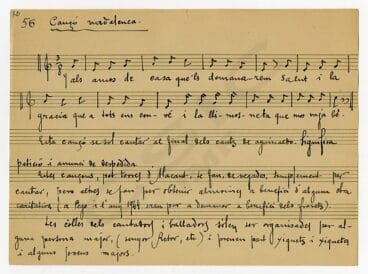 56 Cançó nadalenca.
y als amos de casa qu'els demana-rem salut i la
gracia que a tots ens con-vé i la lli-mos-neta que mos haja bé.
Esta cançó se sol cantar al final dels cants de aguinaldo. Significa
petició i anunci de despedida.
Estes cançons, pot torres d'Alacant, se fan, de vegades, simplement per
cantar, pero altres se fan per obtenir almoines a benefici d'alguna obra
caritativa (a Pego i l'any 1948, eren per a donar a benefici dels).
Les colles dels cantadors i balladors solen ser organisades per al-
guna persona major, (senyor Retor, etc) i prenen part (xiquets i xiquetes
i alguns jovens majors.